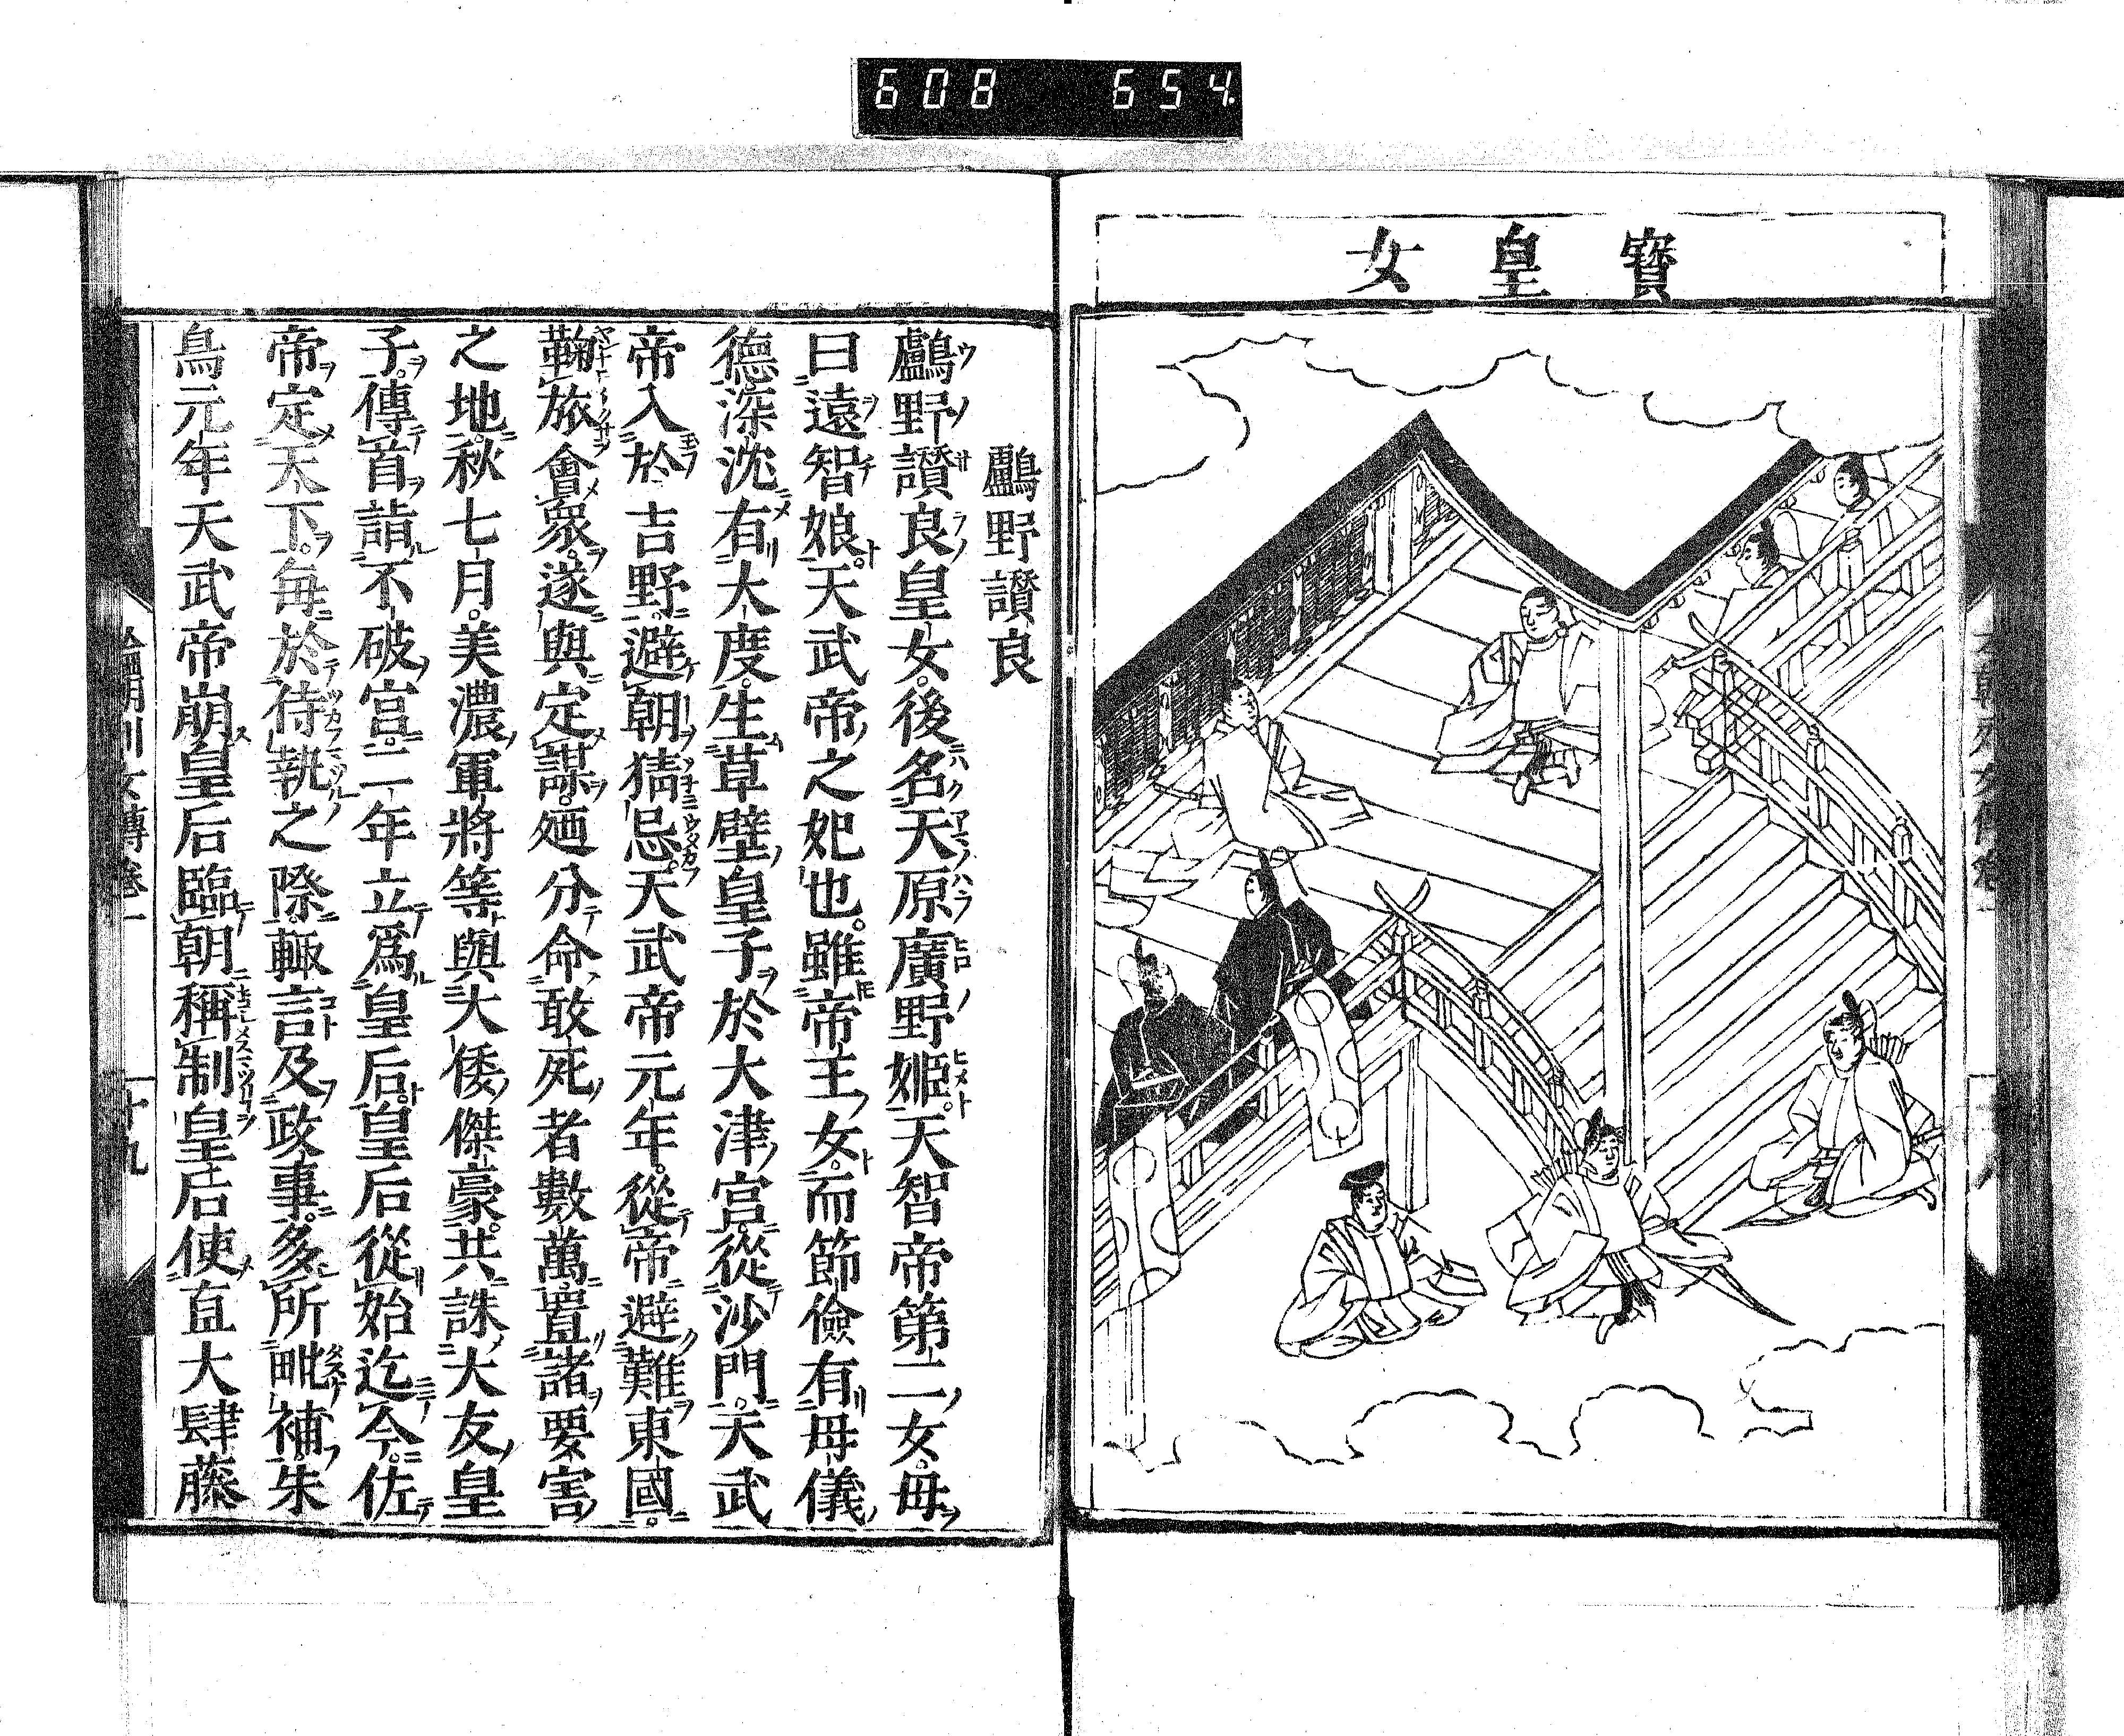 608 654
寶皇女
鸕野讃良
鸕野讃良皇女。後名天原廣野姬。天智帝第二女。母
曰遠智娘。天武帝之妃也。雖帝王女。而節儉有母儀
德深沈有大度。生草壁皇子於大津宮。從沙門。天武
帝入於吉野。避朝猜忌。天武帝元年。從帝避難東國。
鞠旅會衆。遂與定謀。廼分命敢死者數萬置諸要害
之地。秋七月。美濃軍將等與大倭傑豪。共誅大友皇
子。傳首詣不破宮。二年立爲皇后。皇后從始迄今。佐
帝定天下。每於侍執之際。輙言及政事。多所毗補。朱
鳥元年天武帝崩皇后臨朝稱制皇后使直大肆藤
朝列女傳卷一 十九